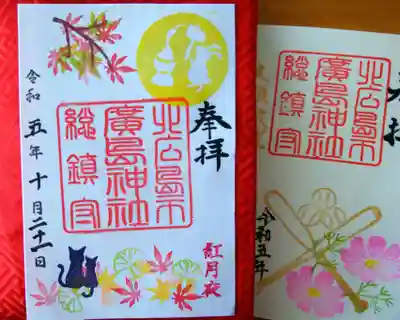 奉拝
北広島市
廣島神社
総鎮守
令和五年十月二十一日
紅月夜
北広島市
廣島神社
総鎮守
令和五年